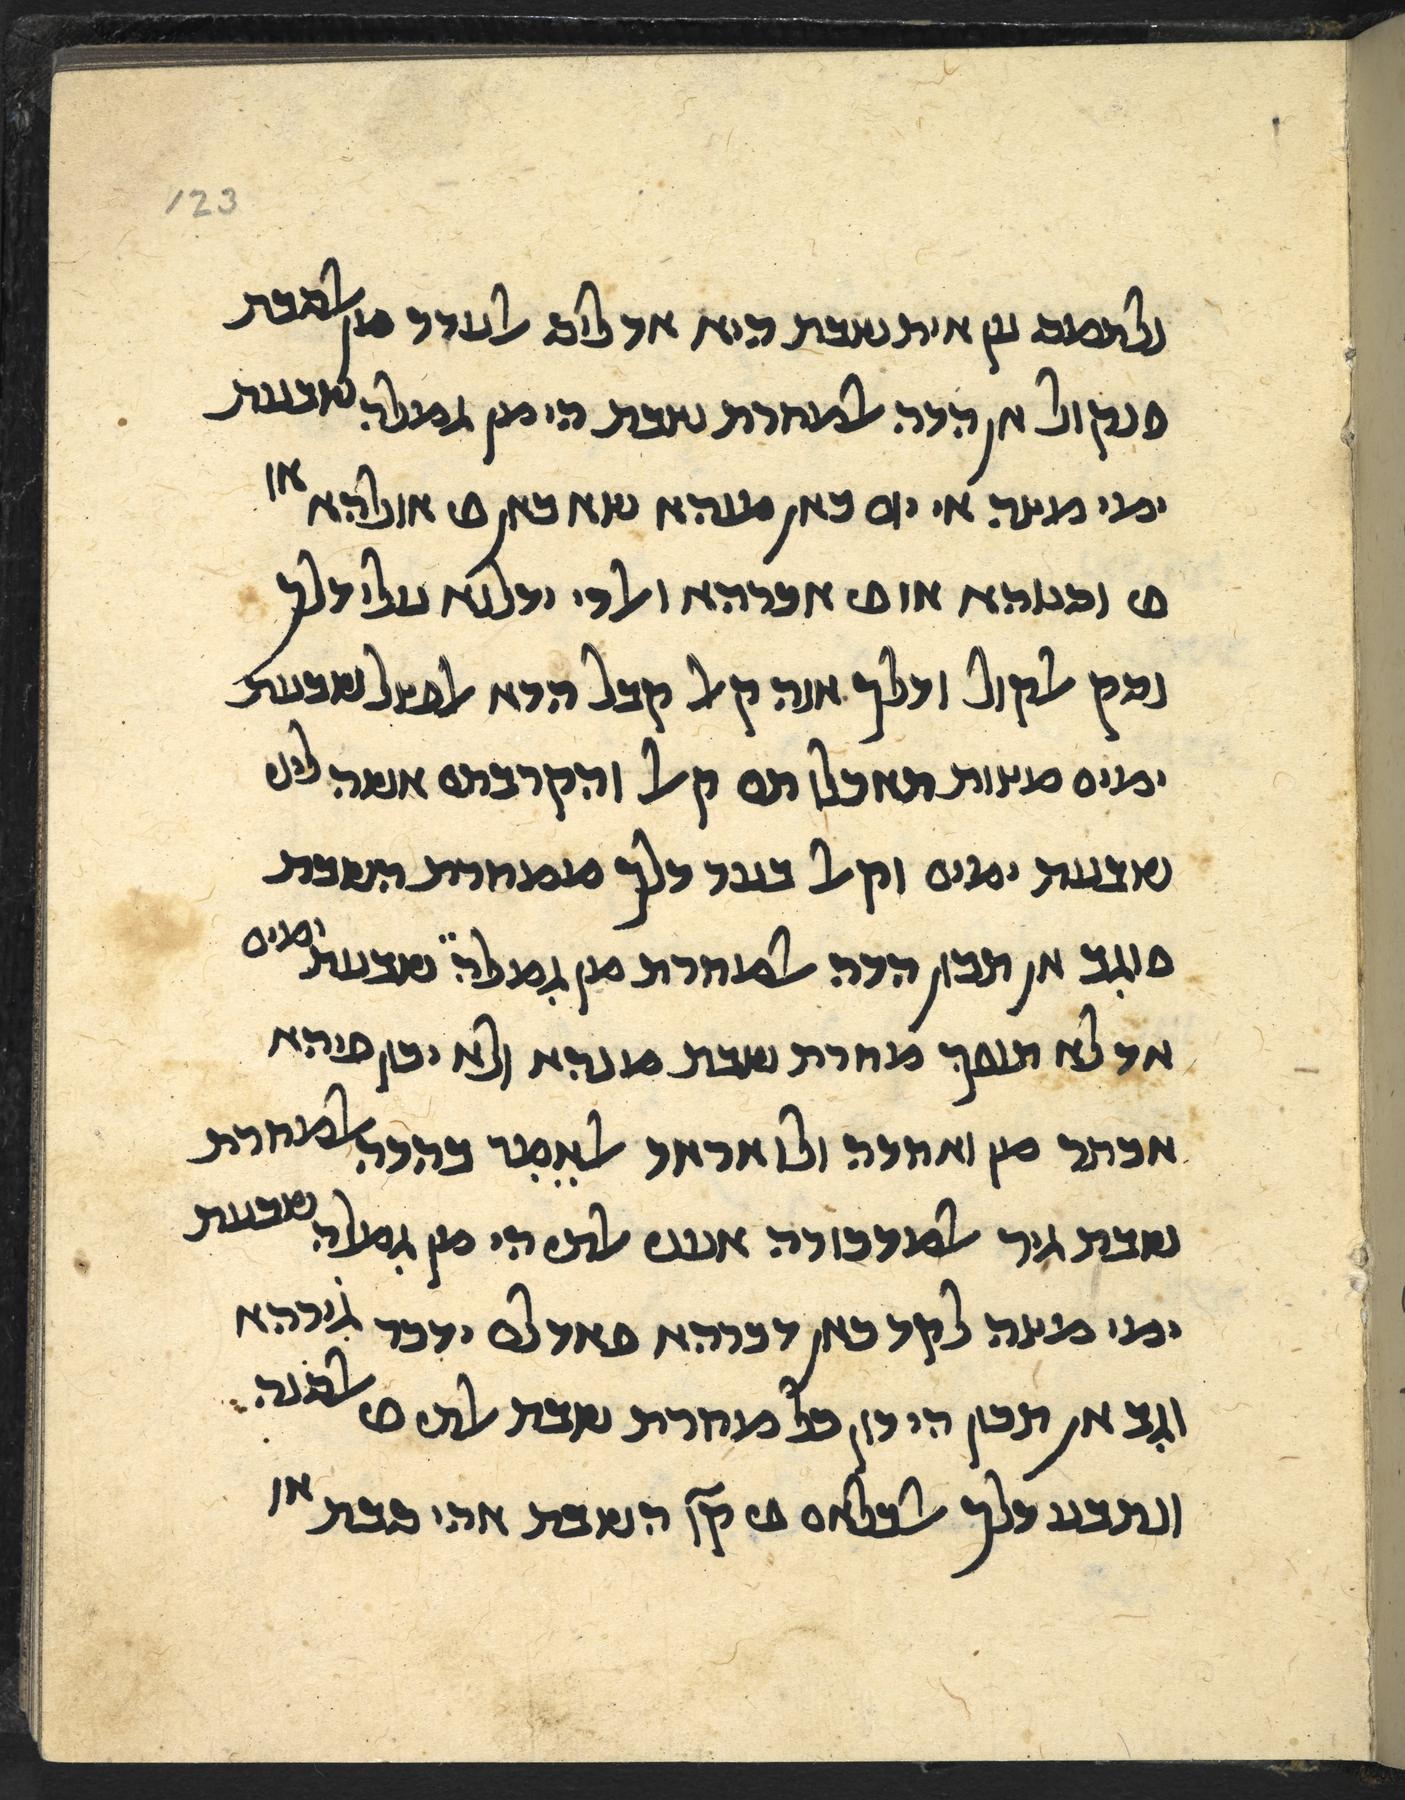 123
ולתמס ען אית שבת היא אד ליס אלעדד מן אלסבת
פנקול אן הדה אלמחרת שבת הי מן גמלה שבעת
ימי מצה אי יום כאן מנהא שא כאן פי אולהא או
פי וסטהא או פי אכרהא ואלדי ידלנא עלי דלך
נסק אלקול ודלך אנה קאל קבל הדא אלפצל שבעת
ימים מצות תאכלו תם קאל והקרבתם אשה ליי
שבעת ימים וקאל בעד דלך ממחרת השבת
פוגב אן תכון הדה אלמחרת מן גמלה שבעת ימים
אד לא תנפך מחרת שבת מנהא ולא יכון פיהא
אכתר מן ואחדה ולו אראד אלאמר בהדה אלמחרת
שבת גיר אלמדכורה אעני אלתי הי מן גמלה שבעת
ימי מצה לקד כאן דכרהא פאד לם ידכר גירהא
וגב אן תכון הי דון כל מחרת שבת אלתי פי אלסנה
ונתבע דלך אלכלאם פי קו׳ השבת אהי סבת או